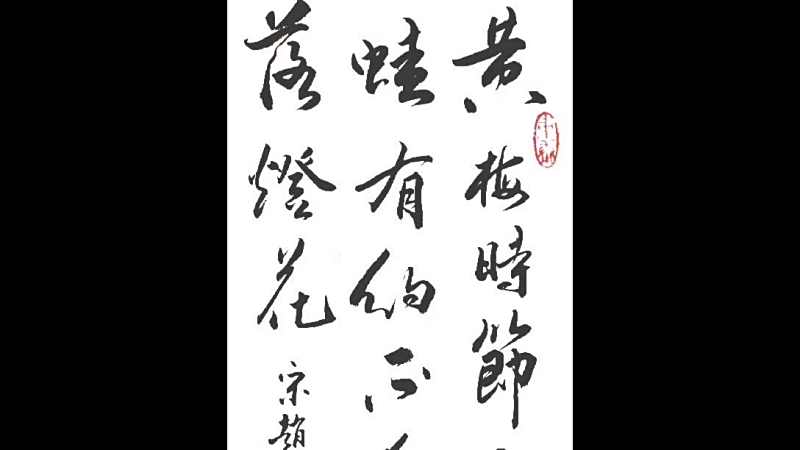 黄梅時節
蛙有約不
落燈花
宋趙